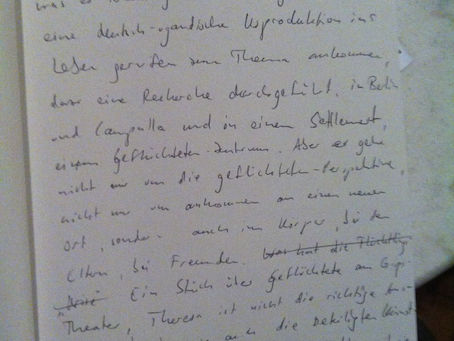 eine deutsch-ugandische Koproduktion ins
Leben gerufen zum Thema ankommen,
dazu eine Recherche durchgeführt, in Berlin
und Campalla und in einem Settlement,
einem Geflüchteten-Zentrum. Aber es gehe
nicht nur um die geflüchteten-Perspektive,
nicht nur um ankommen an einem neuen
Ort, sondern auch im Körper, bei den
Eltern, bei Freunden. was hat die
Ein Stück über Geflüchtete am Grips-
Theater, Theresa ist nicht die richtige
auch die beteiligten